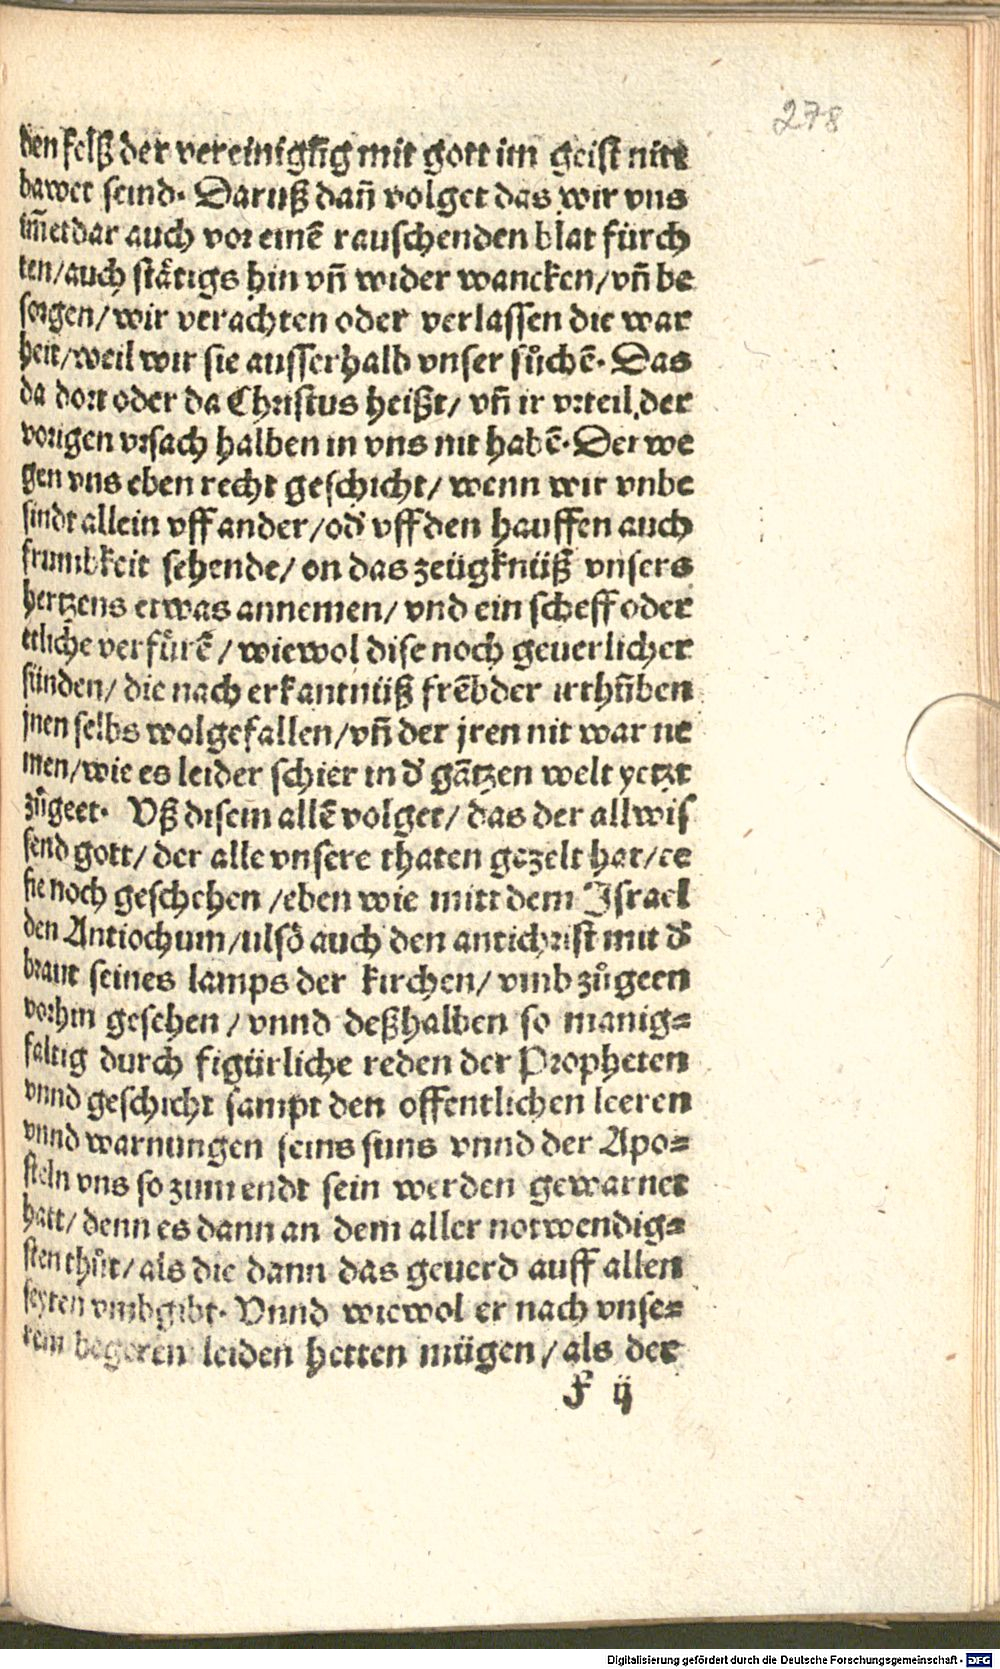 278
den felß der vereinigūg mit gott im geist nitt
bawet seind. Daruß dañ volget das wir vns
im̄erdar auch vor einē rauschenden blat fürch
ten/auch stätigs hin vñ wider wancken/vñ be
sorgen/wir verachten oder verlassen die war
heit/weil wir sie ausserhalb vnser sůchē. Das
da dort oder da Christus heißt/ vñ ir vrteil der
vorigen vrsach halben in vns nit habē. Der we
gen vns eben recht geschicht/ wenn wir vnbe
sindt allein vff ander/od̓ vff den hauffen auch
frumbkeit sehende/ on das zeügknüß vnsers
hertzens etwas annemen/ vnd ein scheff oder
ettliche verfürē/ wiewol dise noch geuerlicher
sünden/ die nach erkantnüß frēbder irthūben
jnen selbs wolgefallen/vñ der jren nit war ne
men/wie es leider schier in d̓ gātzen welt yetzt
zůgeet. Vß disem allē volget/ das der allwis
send gott/ der alle vnsere thaten gezelt hat/ee
sie noch geschehen /eben wie mitt dem Israel
den Antiochum/also auch den antichrist mit d̓
braut seines lamps der kirchen/ vmbzůgeen
vorhin gesehen / vnnd deßhalben so manig=
faltig durch figürliche reden der Propheten
vnnd geschicht sampt den offentlichen leeren
vnnd warnungen seins suns vnnd der Apo=
steln vns so zum endt sein werden gewarnet
hatt/ denn es dann an dem aller notwendig=
sten thůt/ als die dann das geuerd auff allen
seyten vmbgibt. Vnnd wiewol er nach vnse=
rem begeren leiden hetten mügen/ als der
F ij
Digitalisierung gefördert durch die Deutsche Forschungsgemeinschaft - DFG